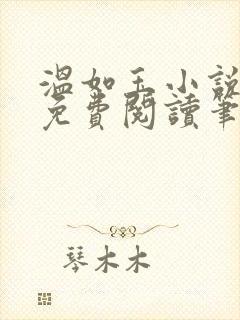 溫如玉小說
免費閱讀筆
琴木木